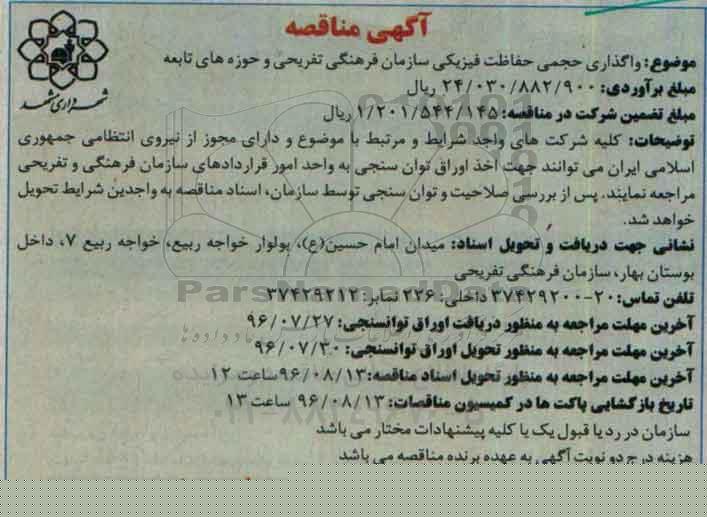 آگهی مناقصه
شهرداری مشهد
موضوع: واگذاری حجمی حفاظت فیزیکی سازمان فرهنگی تفریحی و حوزه های تابعه
مبلغ برآوردی: ۲۴/۰۳۰/۸۸۲/۹۰۰ ریال
مبلغ تضمین شرکت در مناقصه: ۱/۲۰۱/۵۴۴/۱۴۵ ریال
توضیحات: کلیه شرکت های واجد شرایط و مرتبط با موضوع و دارای مجوز از نیروی انتظامی جمهوری
اسلامی ایران می توانند جهت اخذ اوراق توان سنجی به واحد امور قراردادهای سازمان فرهنگی و تفریحی
مراجعه نمایند. پس از بررسی صلاحیت و توان سنجی توسط سازمان، اسناد مناقصه به واجدین شرایط تحویل
خواهد شد.
نشانی جهت دریافت و تحویل اسناد: میدان امام حسین(ع)، بولوار خواجه ربیع، خواجه ربیع ۷، داخل
بوستان بهار، سازمان فرهنگی تفریحی
تلفن تماس: ۲۰-۳۷۴۲۹۲۰۰ داخلی: ۲۳۶ نمابر: ۳۷۴۲۹۲۱۲
آخرین مهلت مراجعه به منظور دریافت اوراق توانسنجی: ۹۶/۰۷/۲۷
آخرین مهلت مراجعه به منظور تحویل اوراق توانسنجی: ۹۶/۰۷/۳۰
آخرین مهلت مراجعه به منظور تحویل اسناد مناقصه: ۹۶/۰۸/۱۳ ساعت ۱۲
تاریخ بازگشایی پاکت ها در کمیسیون مناقصات: ۹۶/۰۸/۱۳ ساعت ۱۳
سازمان در رد یا قبول یک یا کلیه پیشنهادات مختار می باشد
هزینه درج دو نوبت آگهی به عهده برنده مناقصه می باشد
ParsNamadData